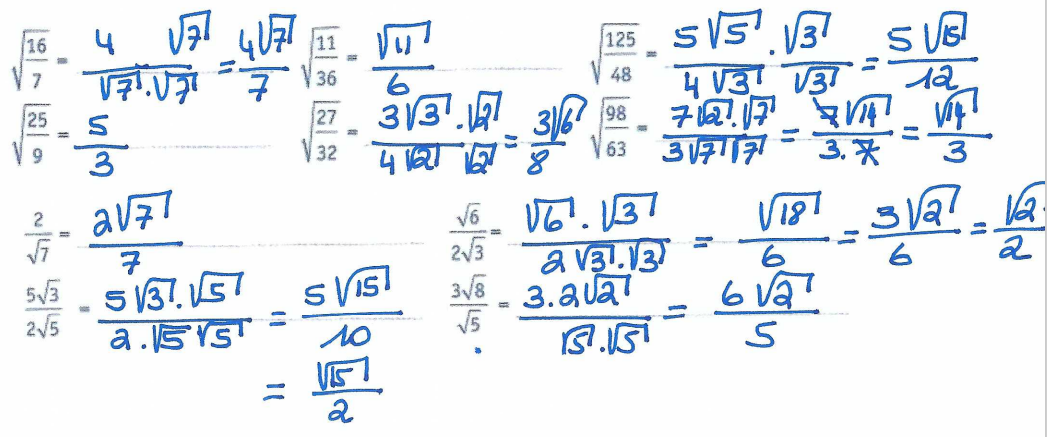 √(16/7) = 4/√7 · √7/√7 = 4√7/7
√(11/36) = √11/6
√(125/48) = 5√5/4√3 · √3/√3 = 5√15/12
√(25/9) = 5/3
√(27/32) = 3√3·√2/4√2 √2 = 3√6/8
√(98/63) = 7√2·√7/3√7 √7 = 7√14/3·7 = √14/3
2/√7 = 2√7/7
√6/2√3 = √6·√3/2√3·√3 = √18/6 = 3√2/6 = √2/2
5√3/2√5 = 5√3·√5/2·√5 √5 = 5√15/10
3√8/√5 = 3·2√2/√5·√5 = 6√2/5
= √15/2